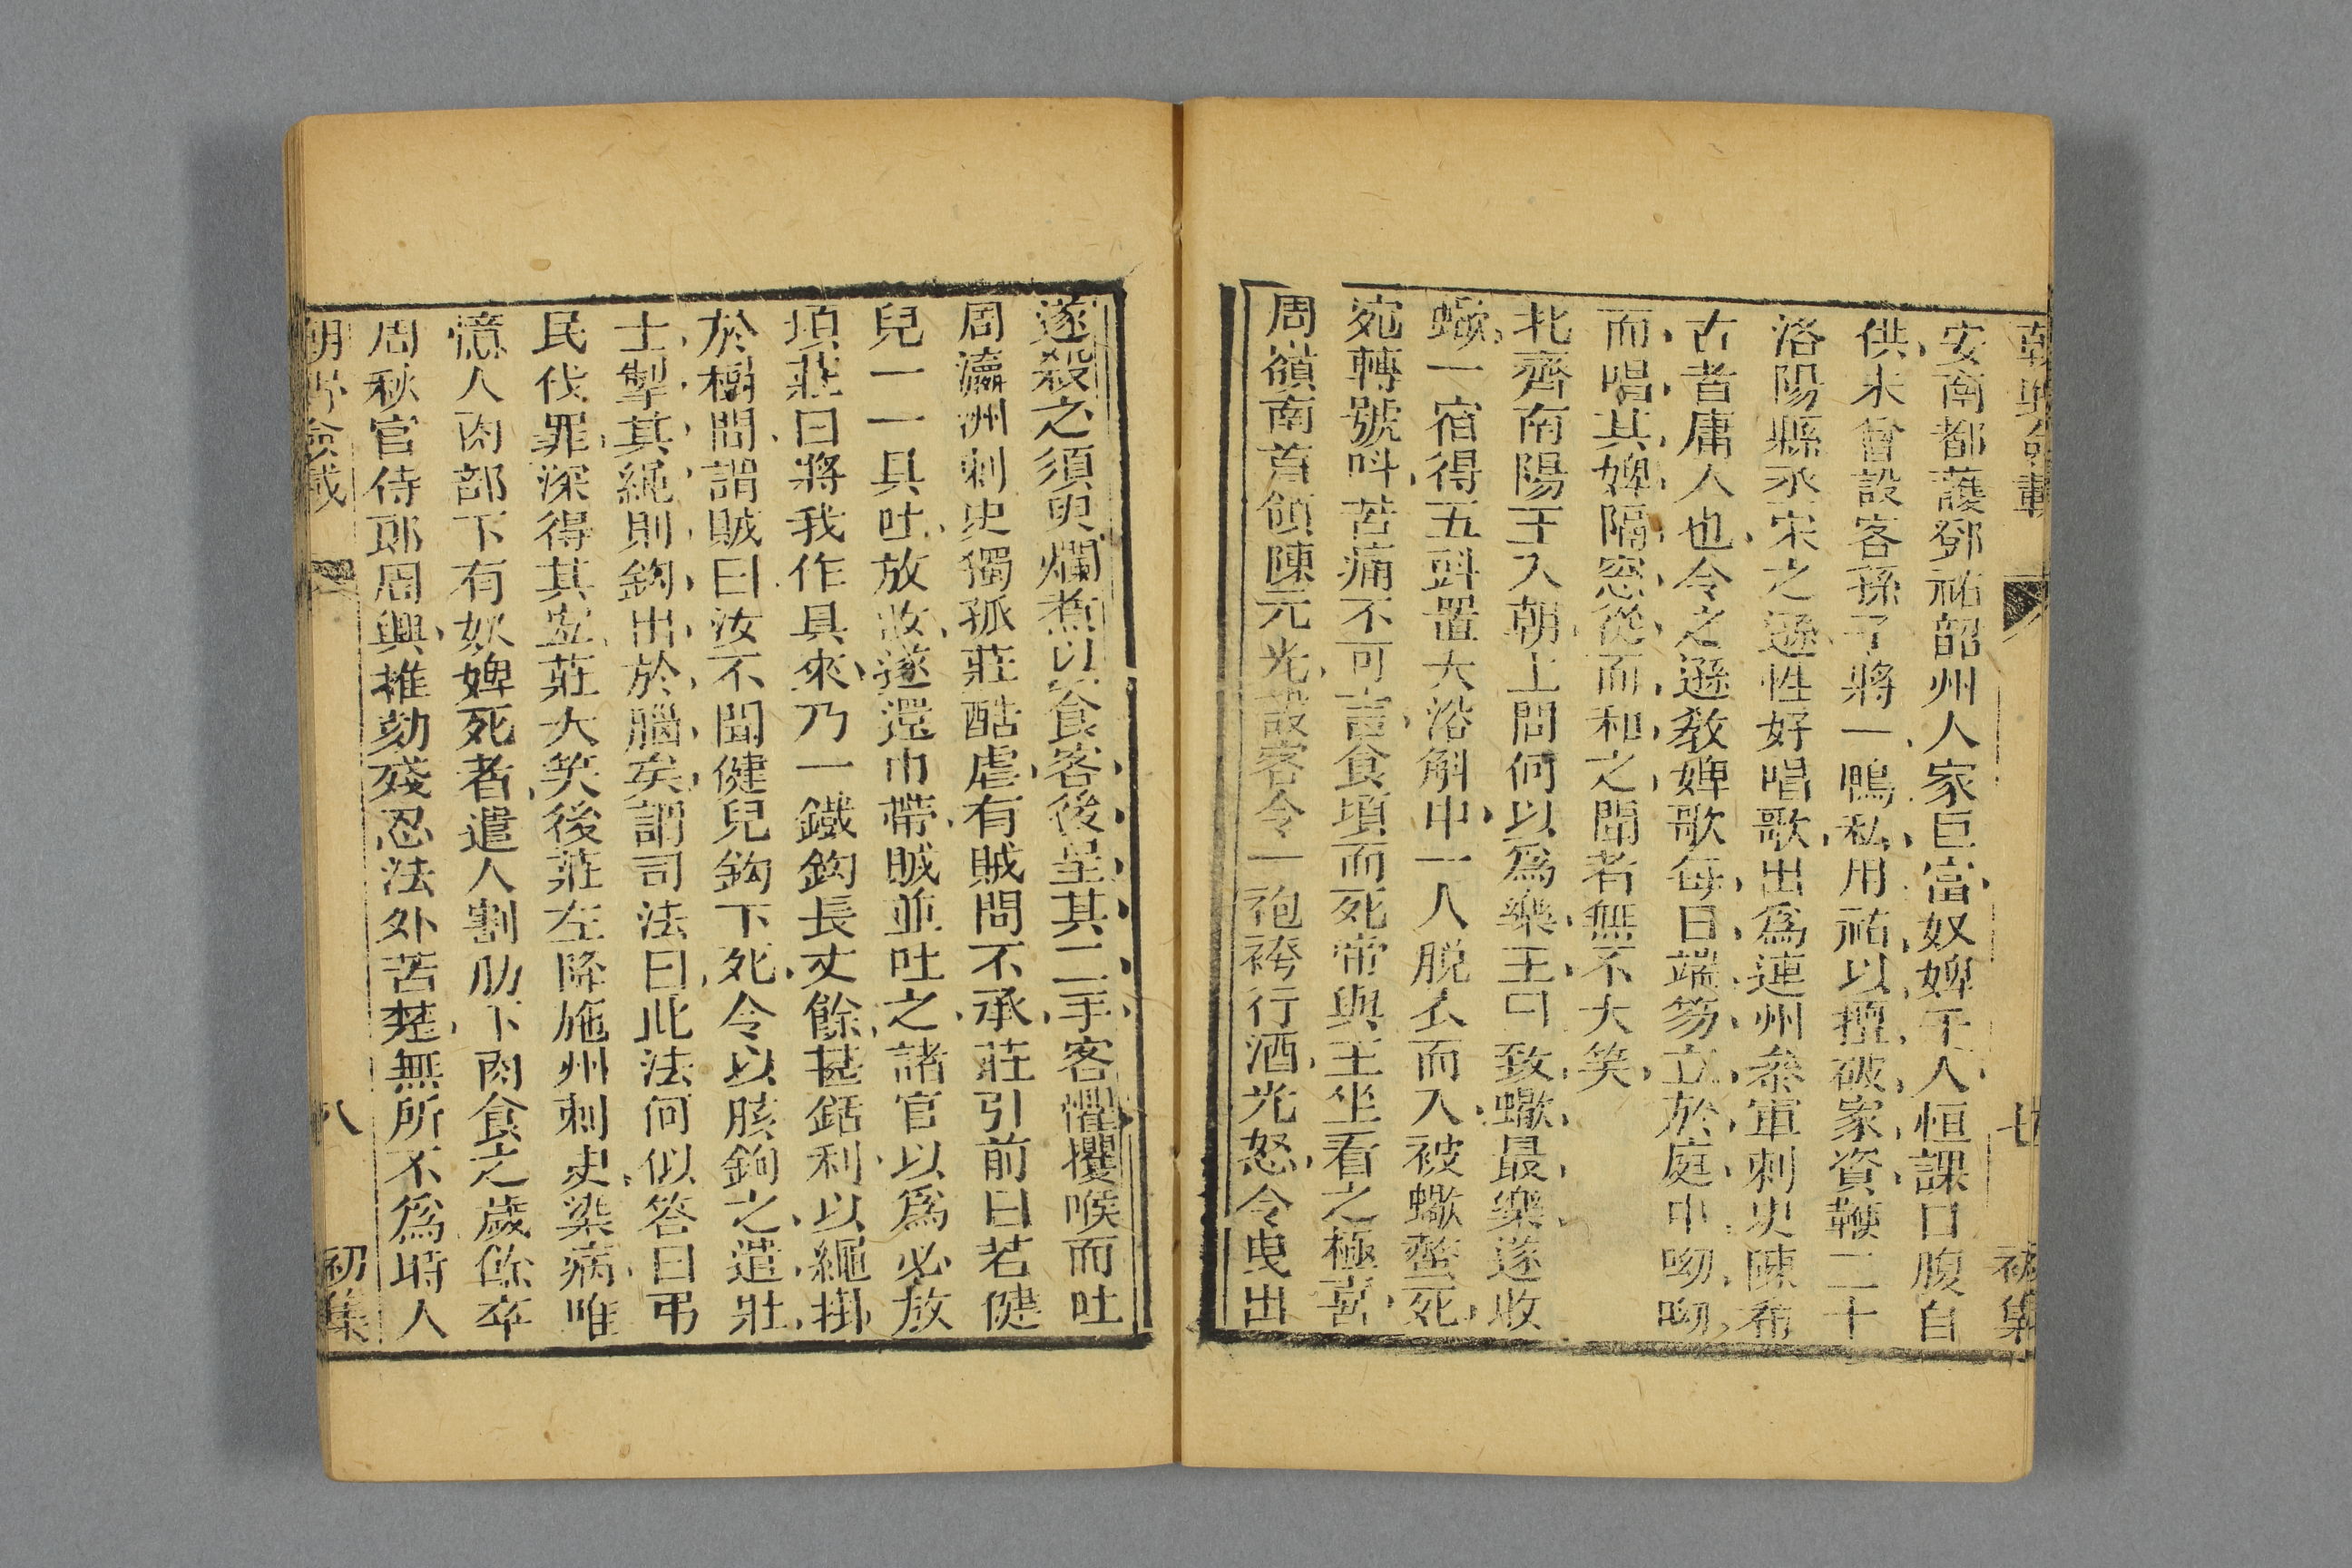 朝野僉載 七 初集
安南都護鄧祐韶州人家巨富奴婢千人恒課口腹自
供未曾設客孫子將一鴨私用祐以擅破家資鞭二十
洛陽縣丞宋之遜性好唱歌出爲連州叅軍刺史陳希
古者庸人也令之遜敎婢歌每日端笏立於庭中呦呦
而唱其婢隔窓從而和之聞者無不大笑
北齊南陽王入朝上問何以爲樂王曰致蠍最樂遂收
蠍一宿得五㪷置大浴斛中一人脫衣而入被蠍螫死
宛轉號呌苦痛不可言食頃而死帝與王坐看之極喜
周嶺南首領陳元光設客令一袍袴行酒光怒令曳出
遂殺之須臾爛煮以食客後呈其二手客懼攫喉而吐
周瀛洲刺史獨孤莊酷虐有賊問不承莊引前曰若健
兒一一具吐放汝遂還巾帶賊並吐之諸官以爲必放
頃莊曰將我作具來乃一鐵鈎長丈餘甚銛利以繩掛
於樹間謂賊曰汝不聞健兒鈎下死令以胲鉤之遣壯
士掣其繩則鈎出於腦矣謂司法曰此法何似答曰弔
民伐罪深得其宜莊大笑後莊左降施州刺史染病唯
憶人肉部下有奴婢死者遣人割肋下肉食之歲餘卒
周秋官侍郎周興推劾殘忍法外苦楚無所不爲時人
朝野僉載 八 初集